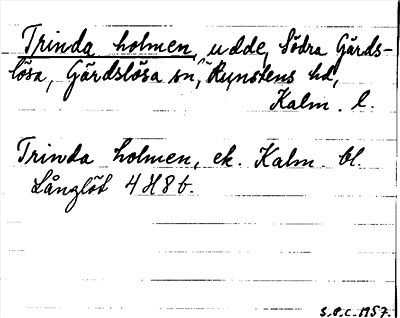 Trinda holmen, udde, Södra Gärds-
lösa, Gärdslösa sn, Runstens hd,
Kalm. l.
Trinda holmen, ek. Kalm. bl.
Långlöt 4 H 8 b.
S.P.C. 1957.